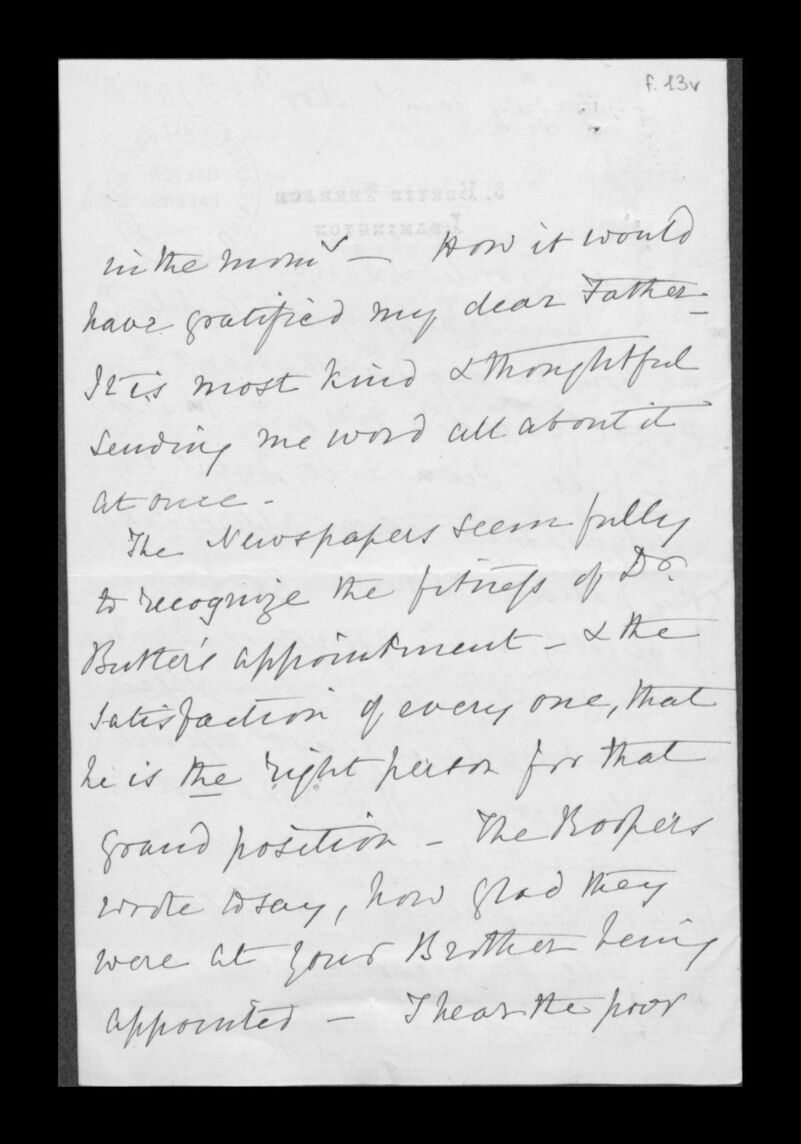 f. 13v
in the morng — How it would
have gratified my dear Father -
It is most kind & thoughtful
sending me word all about it
at once -
The Newspapers seem fully
to recognize the fitness of Dr.
Butler's appointment - & the
satisfaction of every one, that
he is the right person for that
grand position - The Roopers
wrote to say, how glad they
were at your Brother being
appointed - I hear the poor
5, BERTIE TERRACE
LEAMINGTON
GALTON
PAPERS